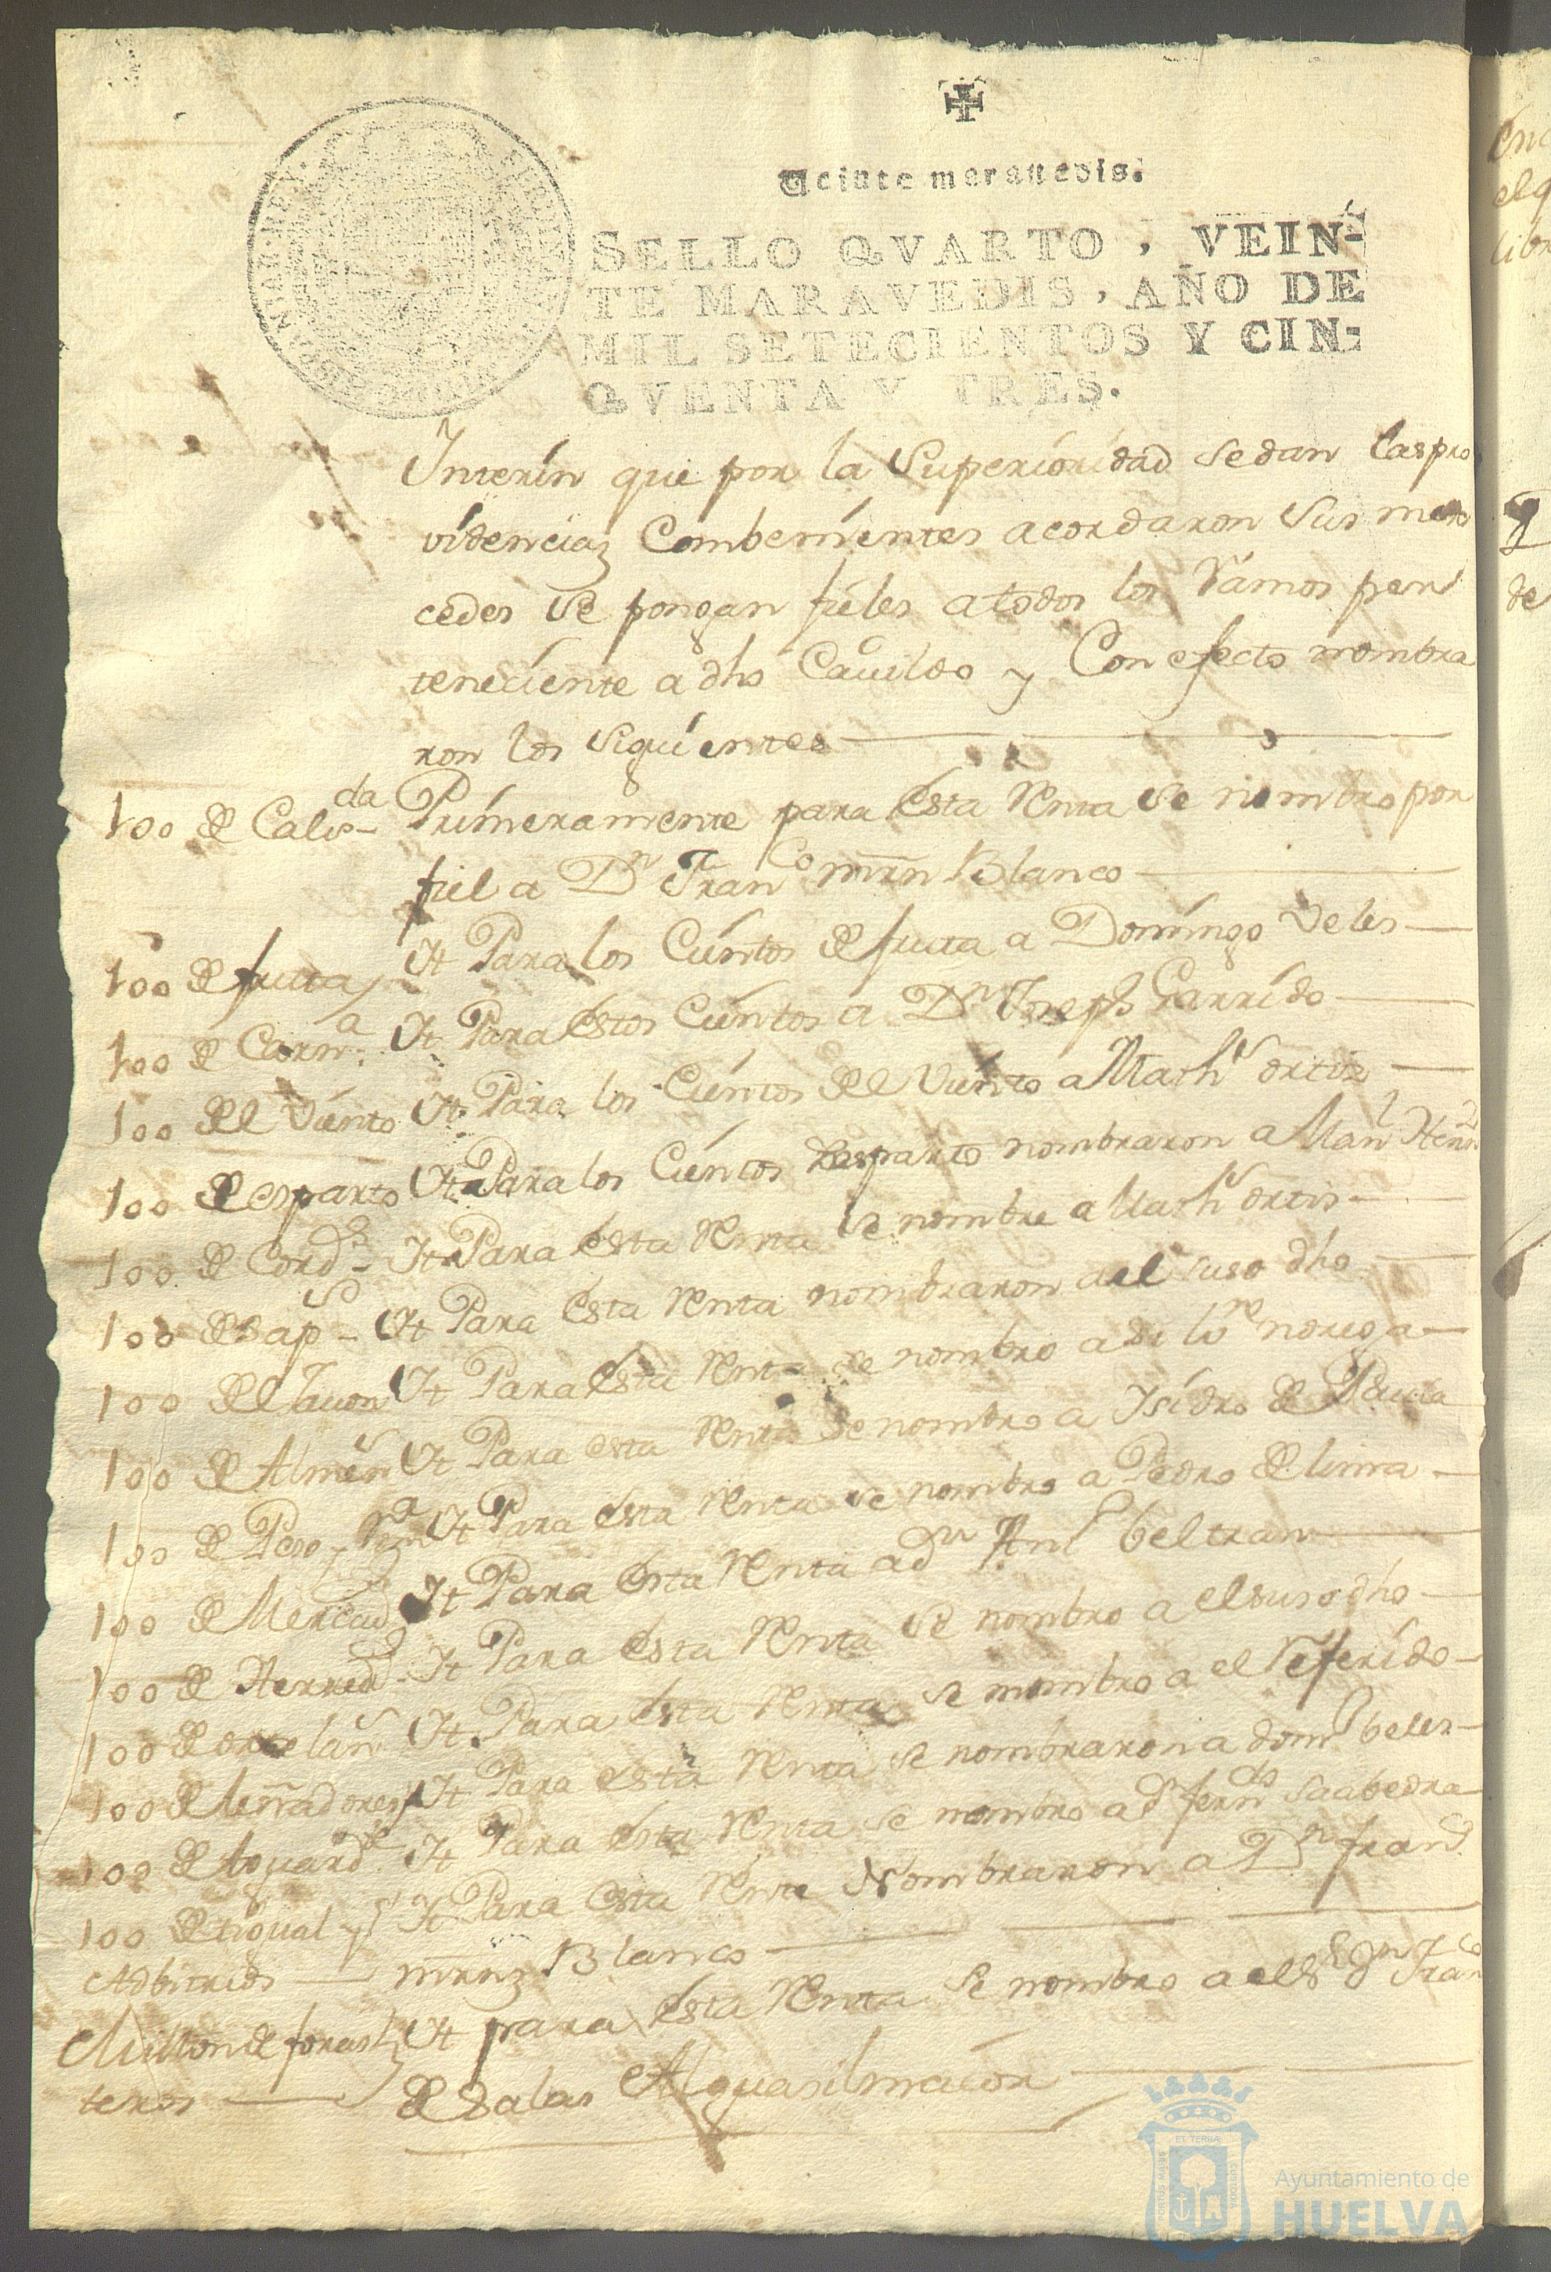 Veinte maravedis.
SELLO QVARTO, VEIN-
TE MARAVEDIS, AÑO DE
MIL SETECIENTOS Y CIN-
QVENTA Y TRES.
Ynterin que por la Superioridad se dan las pro
videncias Combenientes acordaron Sus mer
cedes Se pongan fieles a todos los Ramos per
teneciente a dho Cauildo y Con efecto nombra
ron los Siguientes
100 de Calisda Primeramente para esta Renta se nombro por
fiel a Dn Franco mrn Blanco
100 de fruta It Para los Cientos de fruta a Domingo Veles
100 de Carna It Para estos Cientos a Dn Joseph Garrido
100 del Viento It Para los Cientos del Viento a Mathl ortiz
100 de esparto It Para los Cientos desparto nombraron a Manl Hern
100 de Cord It Para esta Renta se nombre a Math ortis
100 de Sapo It Para esta Renta nombraron a el suso dho
100 del Jauon It Para esta Rent se nombro a Silvre noriega
100 de Almen It Para esta Renta Se nombro a Ysidro de
100 de Peso y It Para esta Renta se nombro a Pedro de lima
100 de Mercad It Para esta Renta a dn Antº beltran
100 de Herred It Para esta Renta se nombro a el suso dho
100 de ortelan It Para esta Renta se nombro a el Referido
100 de leñadores It Para esta Renta se nombraron a domº beles
100 de Aguard It Para esta Renta se nombro a dn ferndo saabedra
100 de tigual y It Para esta Renta Nombraron a Dn fran
Adbitrios mrnz Blanco
Millon de foras It para esta Renta Se nombro a el Sr Dn Franco
teros de Salas Alguasilmaior
Ayuntamiento de
HUELVA